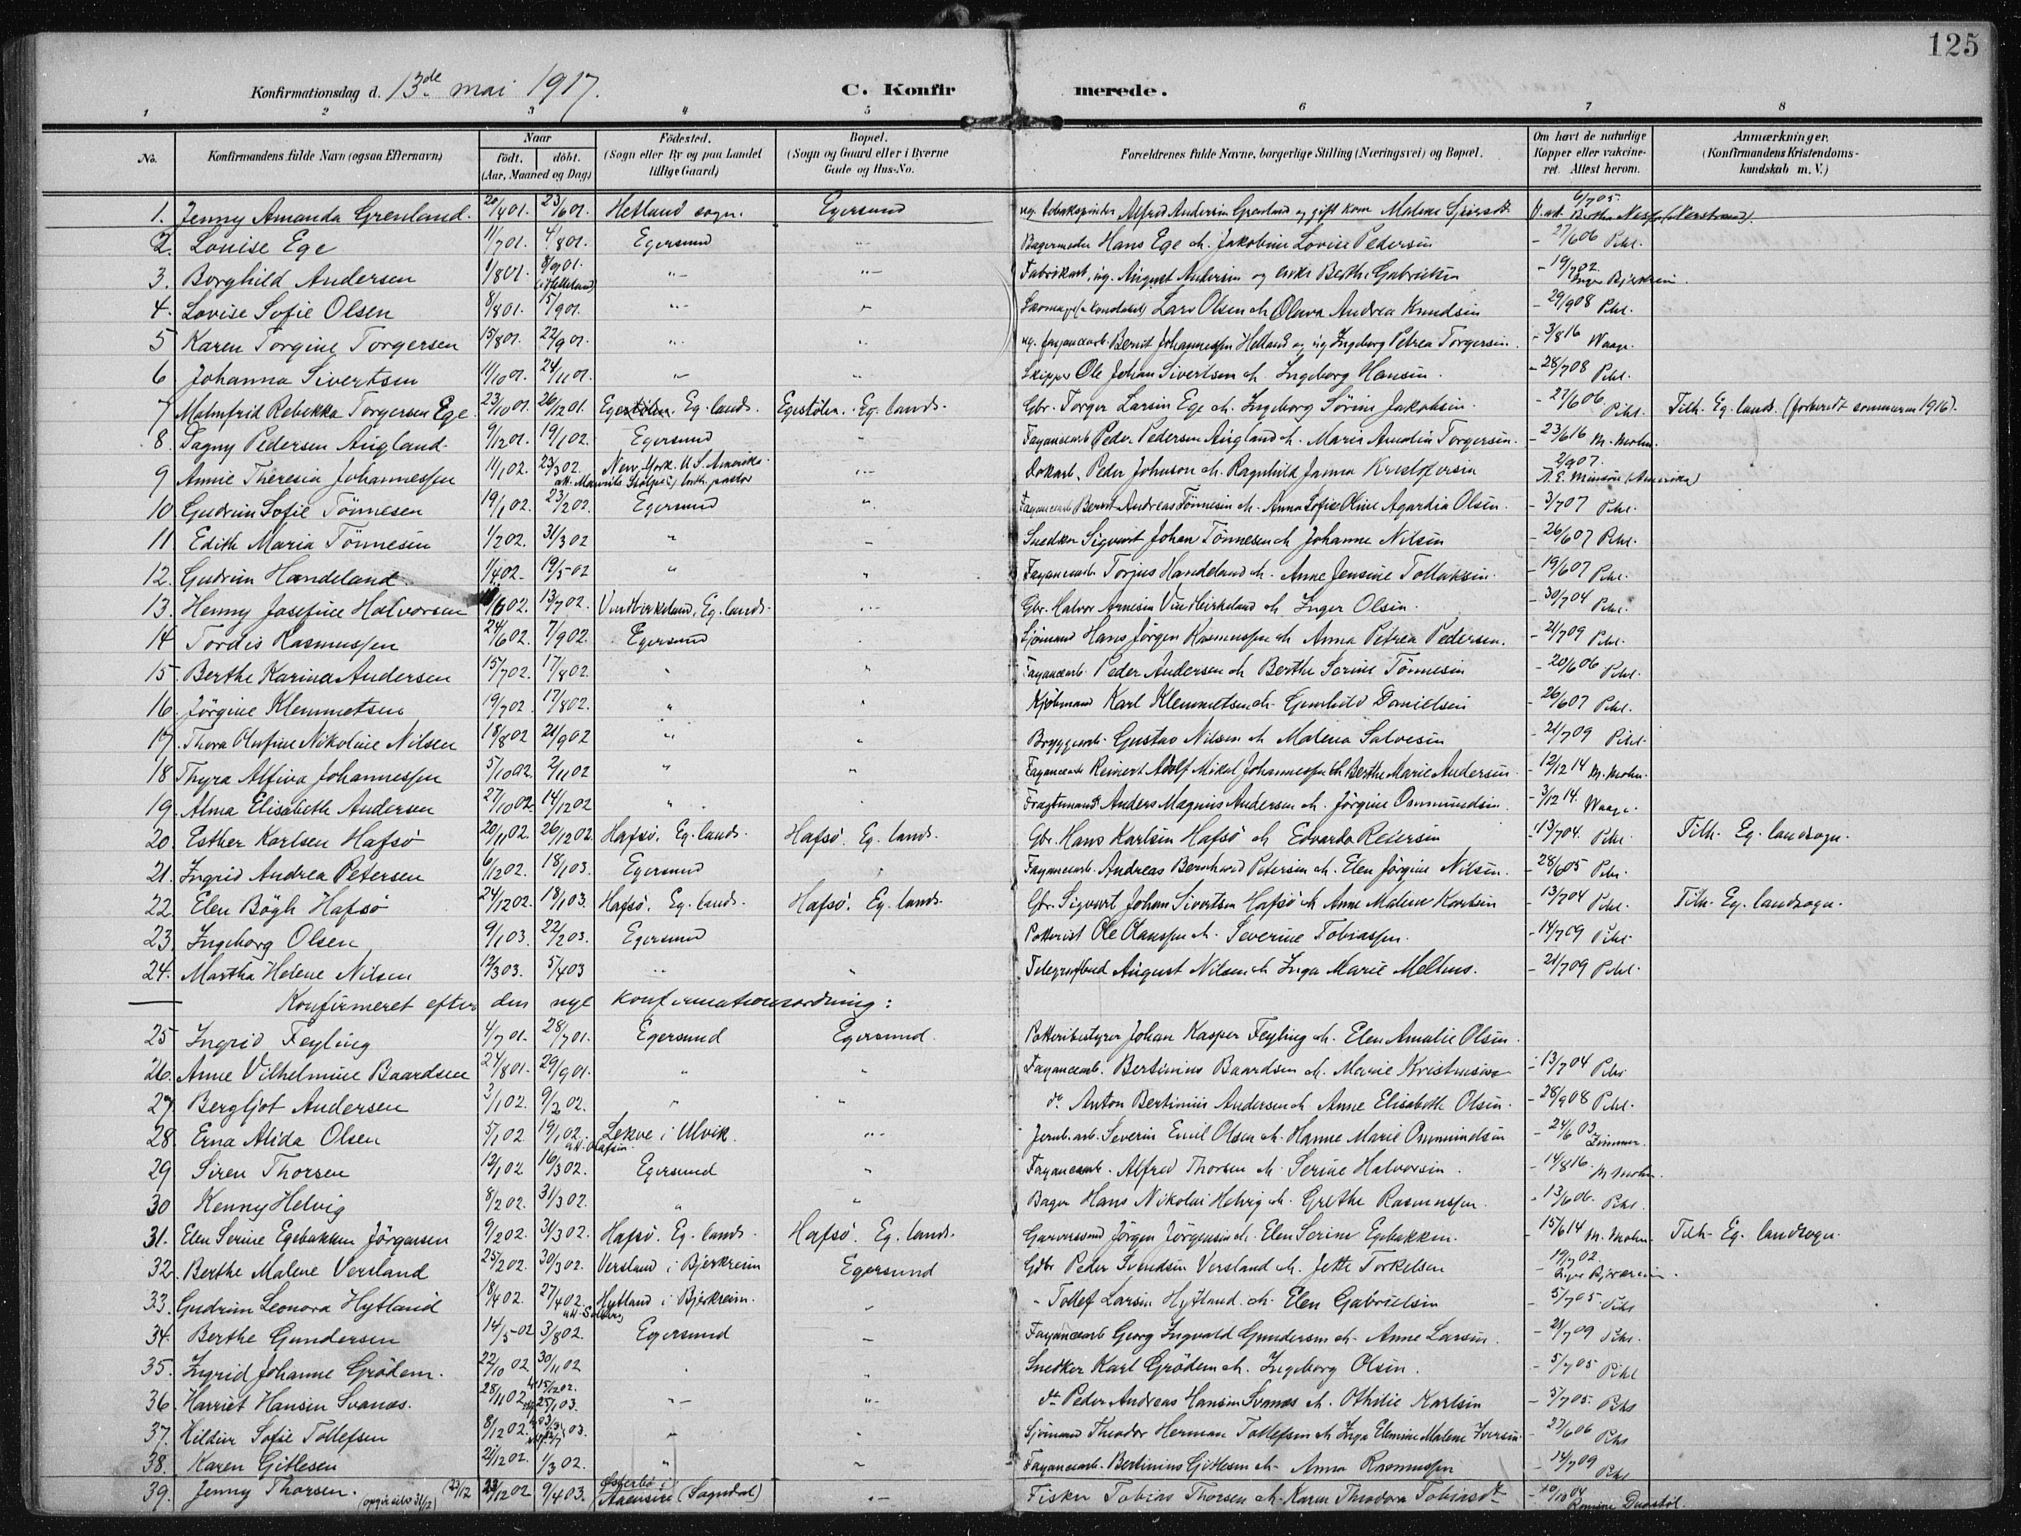 125
Konfirmationsdag d. 13de mai 1917.
C. Konfirmerede.
1 2 3 4 5 6 7 8
No. Konfirmandens fulde Navn (ogsaa Efternavn) Naar født. døbt. (Aar, Maaned og Dag) Födested. (Sogn eller By og paa Landet tillige Gaard) Bopæl. (Sogn og Gaard eller i Byerne Gade og Hus-No. Forældrenes fulde Navne, borgerlige Stilling (Næringsvei) og Bopæl. Om havt de naturlige Kopper eller vakcineret. Attest herom. Anmærkninger. (Konfirmandens Kristendomskundskab m. V.)
1. Jenny Amanda Grenland. 20/4 01. 23/6 01. Hetland sogn. Egersund Alfred Andersen Grenland og gift kone Malene 6/7 05.
2. Lovise Ege 11/7 01. 4/8 01. Egersund " Bagermester Hans Ege & Jakobine Lovise Pedersen - 27/6 06 Pihl.
3. Borghild Andersen 1/8 01. 8/9 01. (i Helleland) " " August Andersen og Berthe Gabrielsen - 19/7 02. Inger Bjerkreim.
4. Lovise Sofie Olsen 8/8 01. 15/9 01. " " Lars Olsen & Olava Andrea Knudsen - 29/9 08 Pihl.
5 Karen Torgine Torgersen 15/8 01. 22/9 01. " " Berent Johannessen Hetland og Ingeborg Petrea Torgersen. - 3/8 16 Waage.
6 Johanna Sivertsen 11/10 01. 24/11 01. " " Skipper Ole Johan Sivertsen & Ingeborg Hansen. - 28/7 08 Pihl.
7 Malmfrid Rebekka Torgersen Ege 23/10 01. 26/12 01. Egestölen. Eg. lands. Egestölen. Eg. lands. Gbr. Torger Larsen Ege & Ingeborg Sörine Jakobsen. - 27/6 06. Pihl. Tilh. Eg. land. (forberedt sommeren 1916).
8. Dagny Pedersen Augland. 9/12 01. 19/1 02. Egersund " Fayancearb. Peder Pedersen Augland & Maria Amalia Torgersen. - 23/6 16 M. Mohn.
9 Annie Theresia Johannessen 11/1 02. 23/3 02. New York. U. S. Amerika. " Dokarb. Peder Johnson & Ragnhild Janna Kristofersen 2/9 07. (Amerika)
10. Gudrun Sofie Tönnesen 19/1 02. 23/2 02. Egersund " Fayancearb Berent Andreas Tönnesen & Anna Sofie Oline Agardia Olsen. - 3/7 07 Pihl.
11. Edith Maria Tönnesen 1/2 02. 31/3 02 " " Snedker Sigvart Johan Tönnesen & Johanne Nilsen - 26/6 07 Pihl.
12. Gudrun Handeland. 1/4 02. 19/5 02 " " Fayancearb. Torjus Handeland & Anne Jensine Tollaksen. - 19/6 07 Pihl.
13. Henny Josefine Halvorsen 1/6 02. 13/7 02. Vindbirkeland, Eg. lands. " Gbr. Halvor Arnesen Vindbirkeland & Inger Olsen. - 30/7 04 Pihl.
14 Tordis Rasmussen 24/6 02. 7/9 02. Egersund " Sjömand Hans Jörgen Rasmussen & Anna Petrea Pedersen. - 21/7 09 Pihl.
15. Berthe Karina Andersen 15/7 02. 17/8 02. " " Fayancearb. Peder Andersen & Berthe Serine Tönnesen - 20/6 06 Pihl.
16. Jörgine Klemmetsen 19/7 02. 17/8 02. " " Kjöbmand Karl Klemmetsen & Gunhild Danielsen - 26/6 07 Pihl.
17. Thora Olufine Nikoline Nilsen 18/8 02 21/9 02 " " Bryggearb. Gustav Nilsen & Malena Salvesen - 21/7 09 Pihl.
18 Thyra Alfiva Johannessen 5/10 02. 2/11 02 " " Fayancearb Reinert Adolf Mikal Johannessen & Berthe Marie Andersen. - 12/12 14 M. Mohn.
19. Alma Elisabeth Andersen 27/10 02. 14/12 02 " " Fragtemand Anders Magnus Andersen & Jörgine Ommundsen. - 3/12 14. Waage.
20. Esther Karlsen Hafsö 20/11 02. 26/12 02. Hafsö. Eg. lands. Hafsö. Eg. lands. Gbr. Hans Karlsen Hafsö & Edvarda Petersen - 13/7 04. Pihl. Tilh. Eg. landsogn.
21. Ingrid Andrea Petersen 6/12 02. 18/1 03. Egersund " Fayancearb. Andreas Bernhard Petersen & Elen Jörgine Nilsen. - 28/6 05 Pihl.
22. Elen Bögh Hafsö 24/12 02. 18/1 03. Hafsö. Eg. lands. Hafsö. Eg. lands. Gbr. Sigvart Johan Sivertsen Hafsö & Anne Malene Karlsen - 13/7 04 Pihl. Tilh. Eg. landsogn.
23. Ingeborg Olsen 9/1 03. 22/2 03. Egersund Ole Olaussen & Severine Tobiassen. - 14/7 09 Pihl.
24. Martha Helene Nilsen 12/3 03. 5/4 03 " " Telegrafbud August Nilsen & Inga Marie Melhus. - 21/7 09 Pihl.
Konfirmeret efter den nye konfirmationsordning:
25 Ingrid Feyling 4/7 01. 28/7 01. Egersund Egersund. Potteribestyrer Johan Kasper Feyling & Elen Amalie Olsen.
26. Anne Vilhelmine Baardsen 24/8 01. 29/9 01. " " Fayancearb. Bertinius Baardsen & Marie Kristensen - 13/7 04 Pihl.
27 Bergljot Andersen 3/1 02. 9/2 02. " " do. Anton Bertinius Andersen & Anne Elisabeth Olsen. - 28/9 08 Pihl.
28. Erna Alida Olsen 5/1 02 19/1 02. Lekve i Ulvik. " Jernb. arb. Severin Emil Olsen & Hanne Marie Ommundsen - 24/6 03. Zimmer.
29 Siren Thorsen 12/1 02 16/3 02. Egersund " Fayancearb. Alfred Thorsen & Serine Halvorsen. - 14/8 16. M Mohn.
30 Kenny Helvig 8/2 02. 31/3 02. " " Bager Hans Nikolai Helvig & Grethe Rasmussen. - 13/6 06. Pihl.
31. Elen Serine Egebakken Jörgensen 9/2 02. 31/3 02. Hafsö. Eg. lands. Hafsö. Eg. lands. Jörgen Jörgensen & Elen Serine Egebakken. - 15/6 14 M. Mohn. Tilh. Eg. landsogn.
32. Berthe Malene Versland 25/2 02. 30/3 02. Versland i Bjerkreim Egersund Gdbr Peder Svendsen Versland & Jette Torkelsen - 19/7 02.
33. Gudrun Leonora Hytland 18/4 02. 27/4 02. Hytland i Bjerkreim. " - Tollef Larsen Hytland & Elen Gabrielsen - 5/7 05. Pihl
34. Berthe Gundersen 14/5 02 3/8 02. Egersund " Fayancearb Georg Ingvald Gundersen & Anne Larsen. - 21/7 09 Pihl.
35. Ingrid Johanne Grödem. 22/10 02. 30/11 02 " " Snedker Karl Grödem & Ingeborg Olsen. - 5/7 05 Pihl
36. Harriet Hansen Svanæs. 28/11 02. 25/1 03. " " do Peder Andreas Hansen Svanæs & Othilie Karlsen - 5/7 05. Pihl
37. Hildur Sofie Tollefsen 8/12 02. " " Sjömand Theodor Herman Tollefsen & Inga Elmine Malene Iversen. - 27/6 06 Pihl
38. Karen Gitlesen 21/12 02. 1/3 02. " " Fayancearb. Bertinius Gitlesen & Anna Rasmussen - 14/7 09 Pihl
39. Jenny Thorsen. (opgir selv 31/12) (23/12 23/12 02. 9/4 03. Østerbö i Aaensire (Sogndal) " Fisker Tobias Thorsen & Karen Theodora Tobiasdtr - 10/10 04